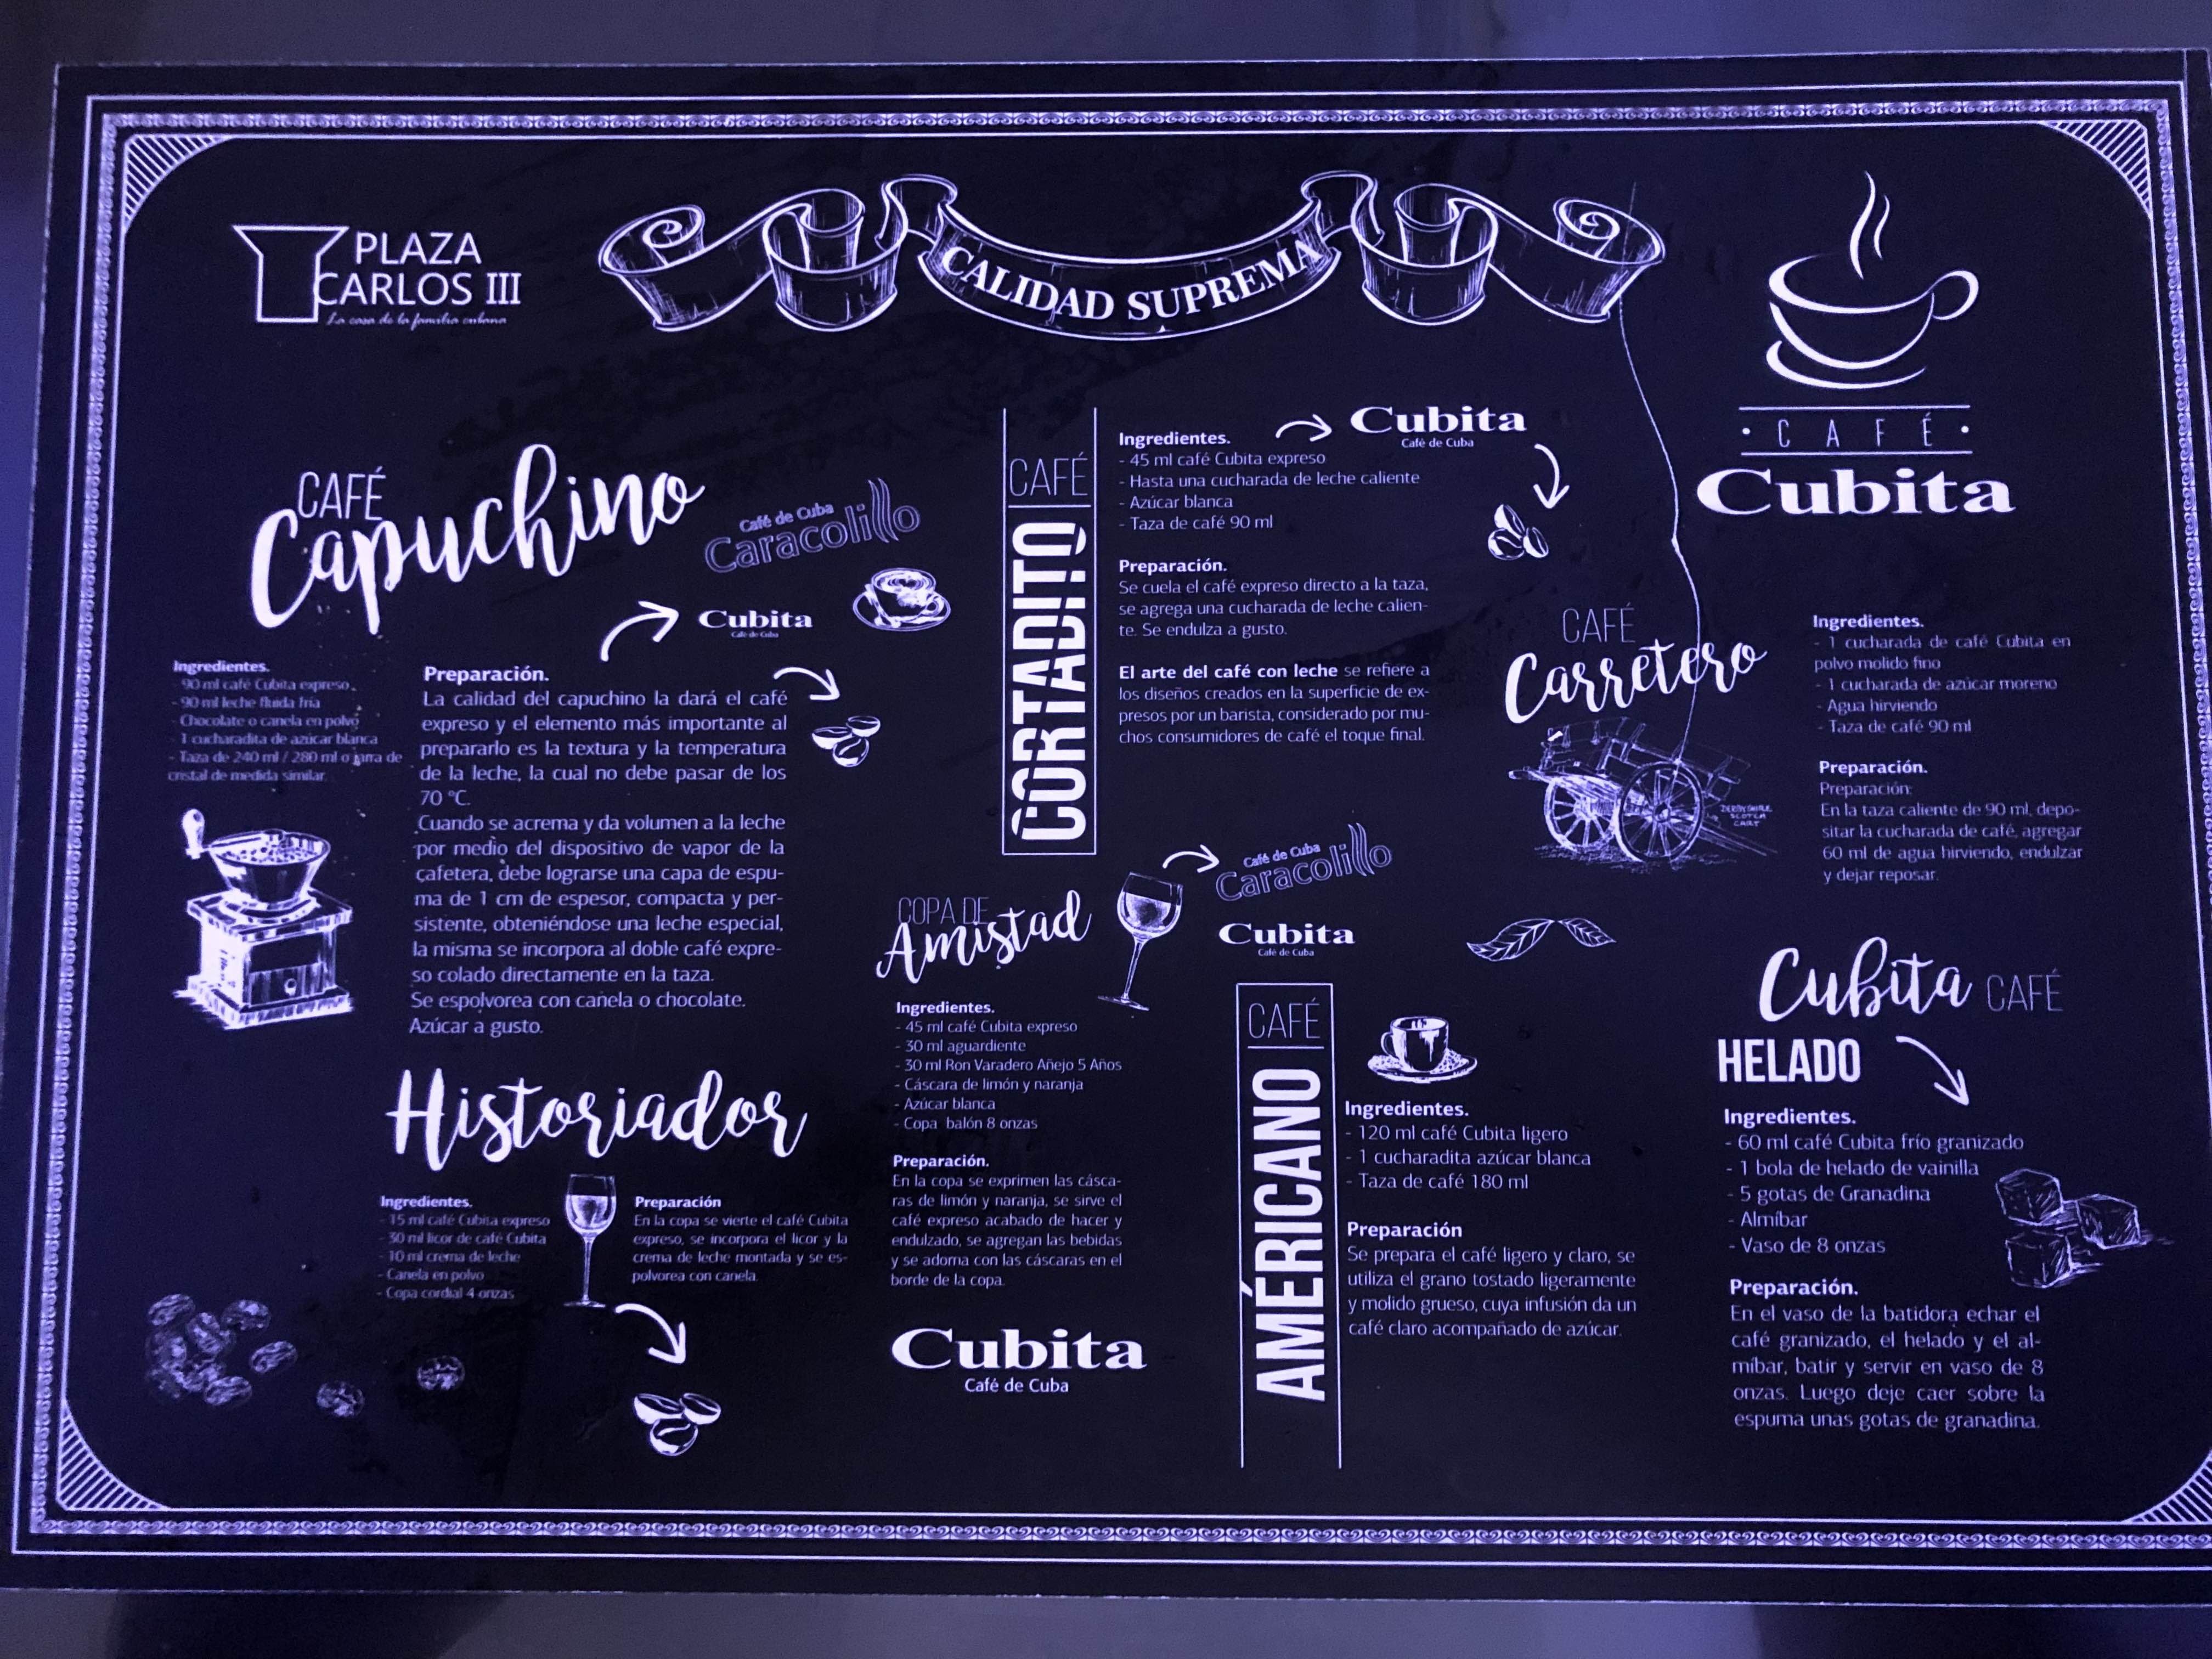 PLAZA
CARLOS III
La casa de la familia cubana
CALIDAD SUPREMA
· C A F É ·
Cubita
CAFÉ
Capuchino
Café de Cuba
Caracolillo
Cubita
Café de Cuba
Ingredientes.
90 ml café Cubita expreso
- 90 ml leche fluida fría
- Chocolate o canela en polvo
1 cucharadita de azúcar blanca
- Taza de 240 ml / 280 ml o jarra de
cristal de medida similar
Preparación.
La calidad del capuchino la dará el café
expreso y el elemento más importante al
prepararlo es la textura y la temperatura
de la leche, la cual no debe pasar de los
70 °C.
Cuando se acrema y da volumen a la leche
por medio del dispositivo de vapor de la
cafetera, debe lograrse una capa de espu-
ma de 1 cm de espesor, compacta y per-
sistente, obteniéndose una leche especial,
la misma se incorpora al doble café expre-
so colado directamente en la taza.
Se espolvorea con canela o chocolate.
Azúcar a gusto.
CAFÉ
CORTADITO
Ingredientes.
- 45 ml café Cubita expreso
- Hasta una cucharada de leche caliente
- Azúcar blanca
- Taza de café 90 ml
Cubita
Café de Cuba
Preparación.
Se cuela el café expreso directo a la taza,
se agrega una cucharada de leche calien-
te. Se endulza a gusto.
El arte del café con leche se refiere a
los diseños creados en la superficie de ex-
presos por un barista, considerado por mu-
chos consumidores de café el toque final.
CAFÉ
Carretero
DERBYSHIRE
SCOTCH
CART
Ingredientes.
- 1 cucharada de café Cubita en
polvo molido fino
- 1 cucharada de azúcar moreno
- Agua hirviendo
- Taza de café 90 ml
Preparación.
Preparación:
En la taza caliente de 90 ml, depo-
sitar la cucharada de café, agregar
60 ml de agua hirviendo, endulzar
y dejar reposar.
Historiador
Ingredientes.
- 15 ml café Cubita expreso
- 30 ml licor de café Cubita
- 10 ml crema de leche
- Canela en polvo
- Copa cordial 4 onzas
Preparación
En la copa se vierte el café Cubita
expreso, se incorpora el licor y la
crema de leche montada y se es-
polvorea con canela.
COPA DE
Amistad
Café de Cuba
Caracolillo
Cubita
Café de Cuba
Ingredientes.
- 45 ml café Cubita expreso
- 30 ml aguardiente
- 30 ml Ron Varadero Añejo 5 Años
- Cáscara de limón y naranja
- Azúcar blanca
- Copa balón 8 onzas
Preparación.
En la copa se exprimen las cásca-
ras de limón y naranja, se sirve el
café expreso acabado de hacer y
endulzado, se agregan las bebidas
y se adorna con las cáscaras en el
borde de la copa.
Cubita
Café de Cuba
CAFÉ
AMÉRICANO
Ingredientes.
- 120 ml café Cubita ligero
- 1 cucharadita azúcar blanca
- Taza de café 180 ml
Preparación
Se prepara el café ligero y claro, se
utiliza el grano tostado ligeramente
y molido grueso, cuya infusión da un
café claro acompañado de azúcar.
Cubita CAFÉ
HELADO
Ingredientes.
- 60 ml café Cubita frío granizado
- 1 bola de helado de vainilla
- 5 gotas de Granadina
- Almíbar
- Vaso de 8 onzas
Preparación.
En el vaso de la batidora echar el
café granizado, el helado y el al-
míbar, batir y servir en vaso de 8
onzas. Luego deje caer sobre la
espuma unas gotas de granadina.